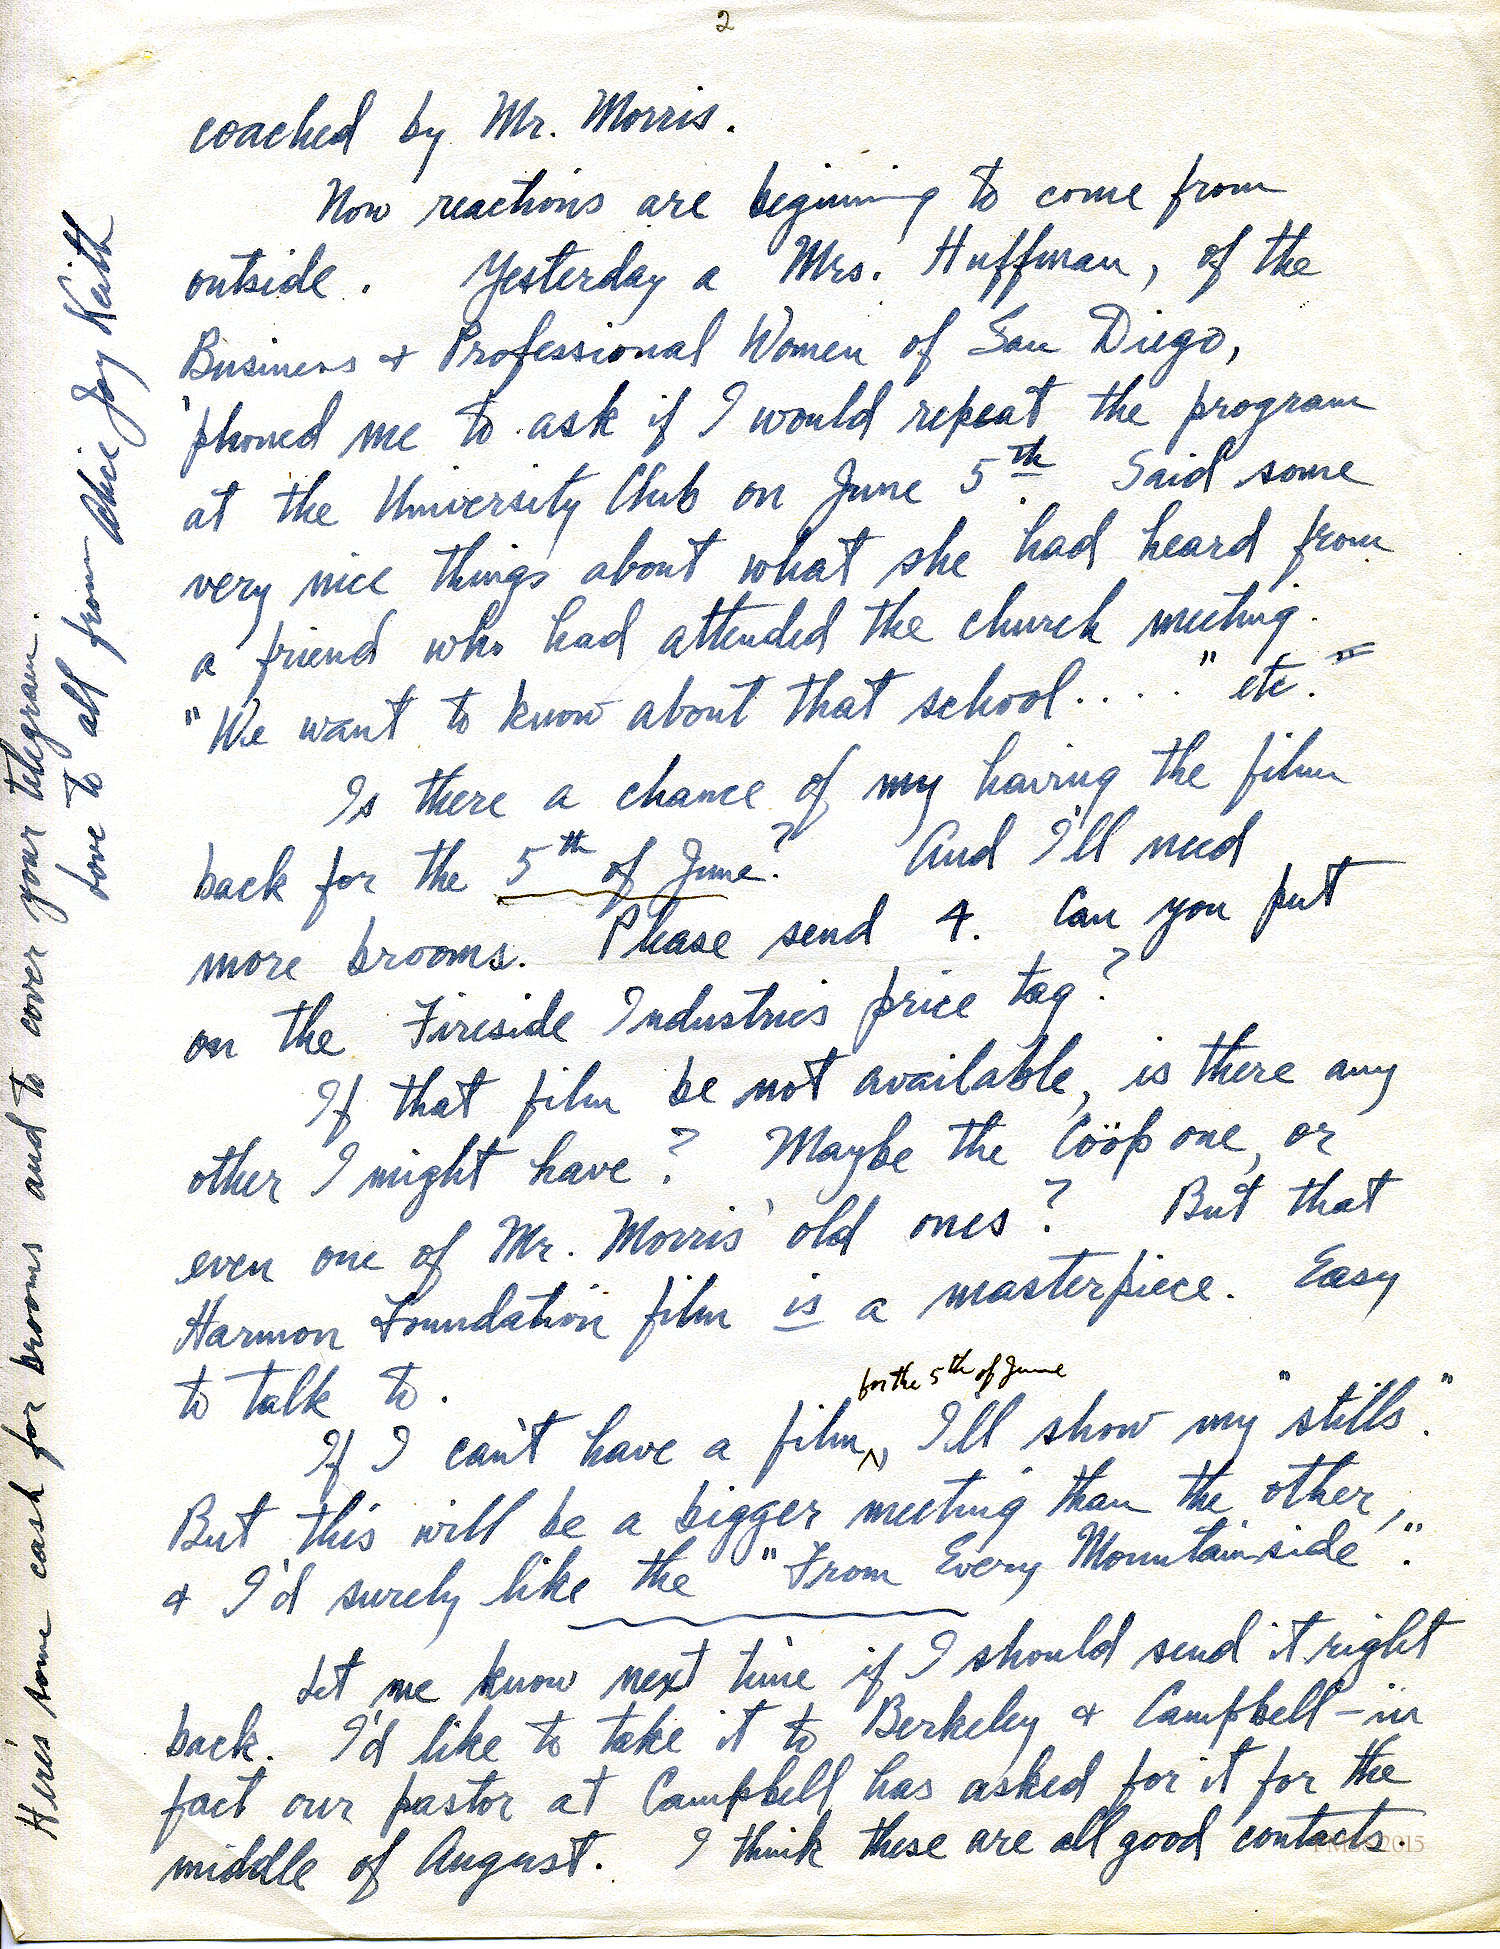 2
coached by Mr. Morris.
Now reactions are begining to come from
outside. Yesterday a Mrs. Huffman, of the
Business & Professional Women of San Diego,
'phoned me to ask if I would repeat the program
at the University Club on June 5th Said some
very nice things about what she had heard from
a friend who had attended the church meeting.
"We want to know about that school...." etc.
Is there a chance of my having the film
back for the 5th of June? And I'll need
more brooms. Please send 4. Can you put
on the Fireside Industries price tag?
If that film be not available, is there any
other I might have? Maybe the Coöp one, or
even one of Mr. Morris' old ones? But that
Harmon Foundation film is a masterpiece. Easy
to talk to.
for the 5th of June
If I can't have a film, I'll show my "stills".
But this will be a bigger meeting than the other,
& I'd surely like the "From Every Mountainside".
Let me know next time if I should send it right
back. I'd like to take it to Berkeley & Campbell – in
fact our pastor at Campbell has asked for it for the
middle of August. I think these are all good contacts.
Here's some cash for brooms and to cover your telegram.
Love to all from Alice Joy Keith
2015